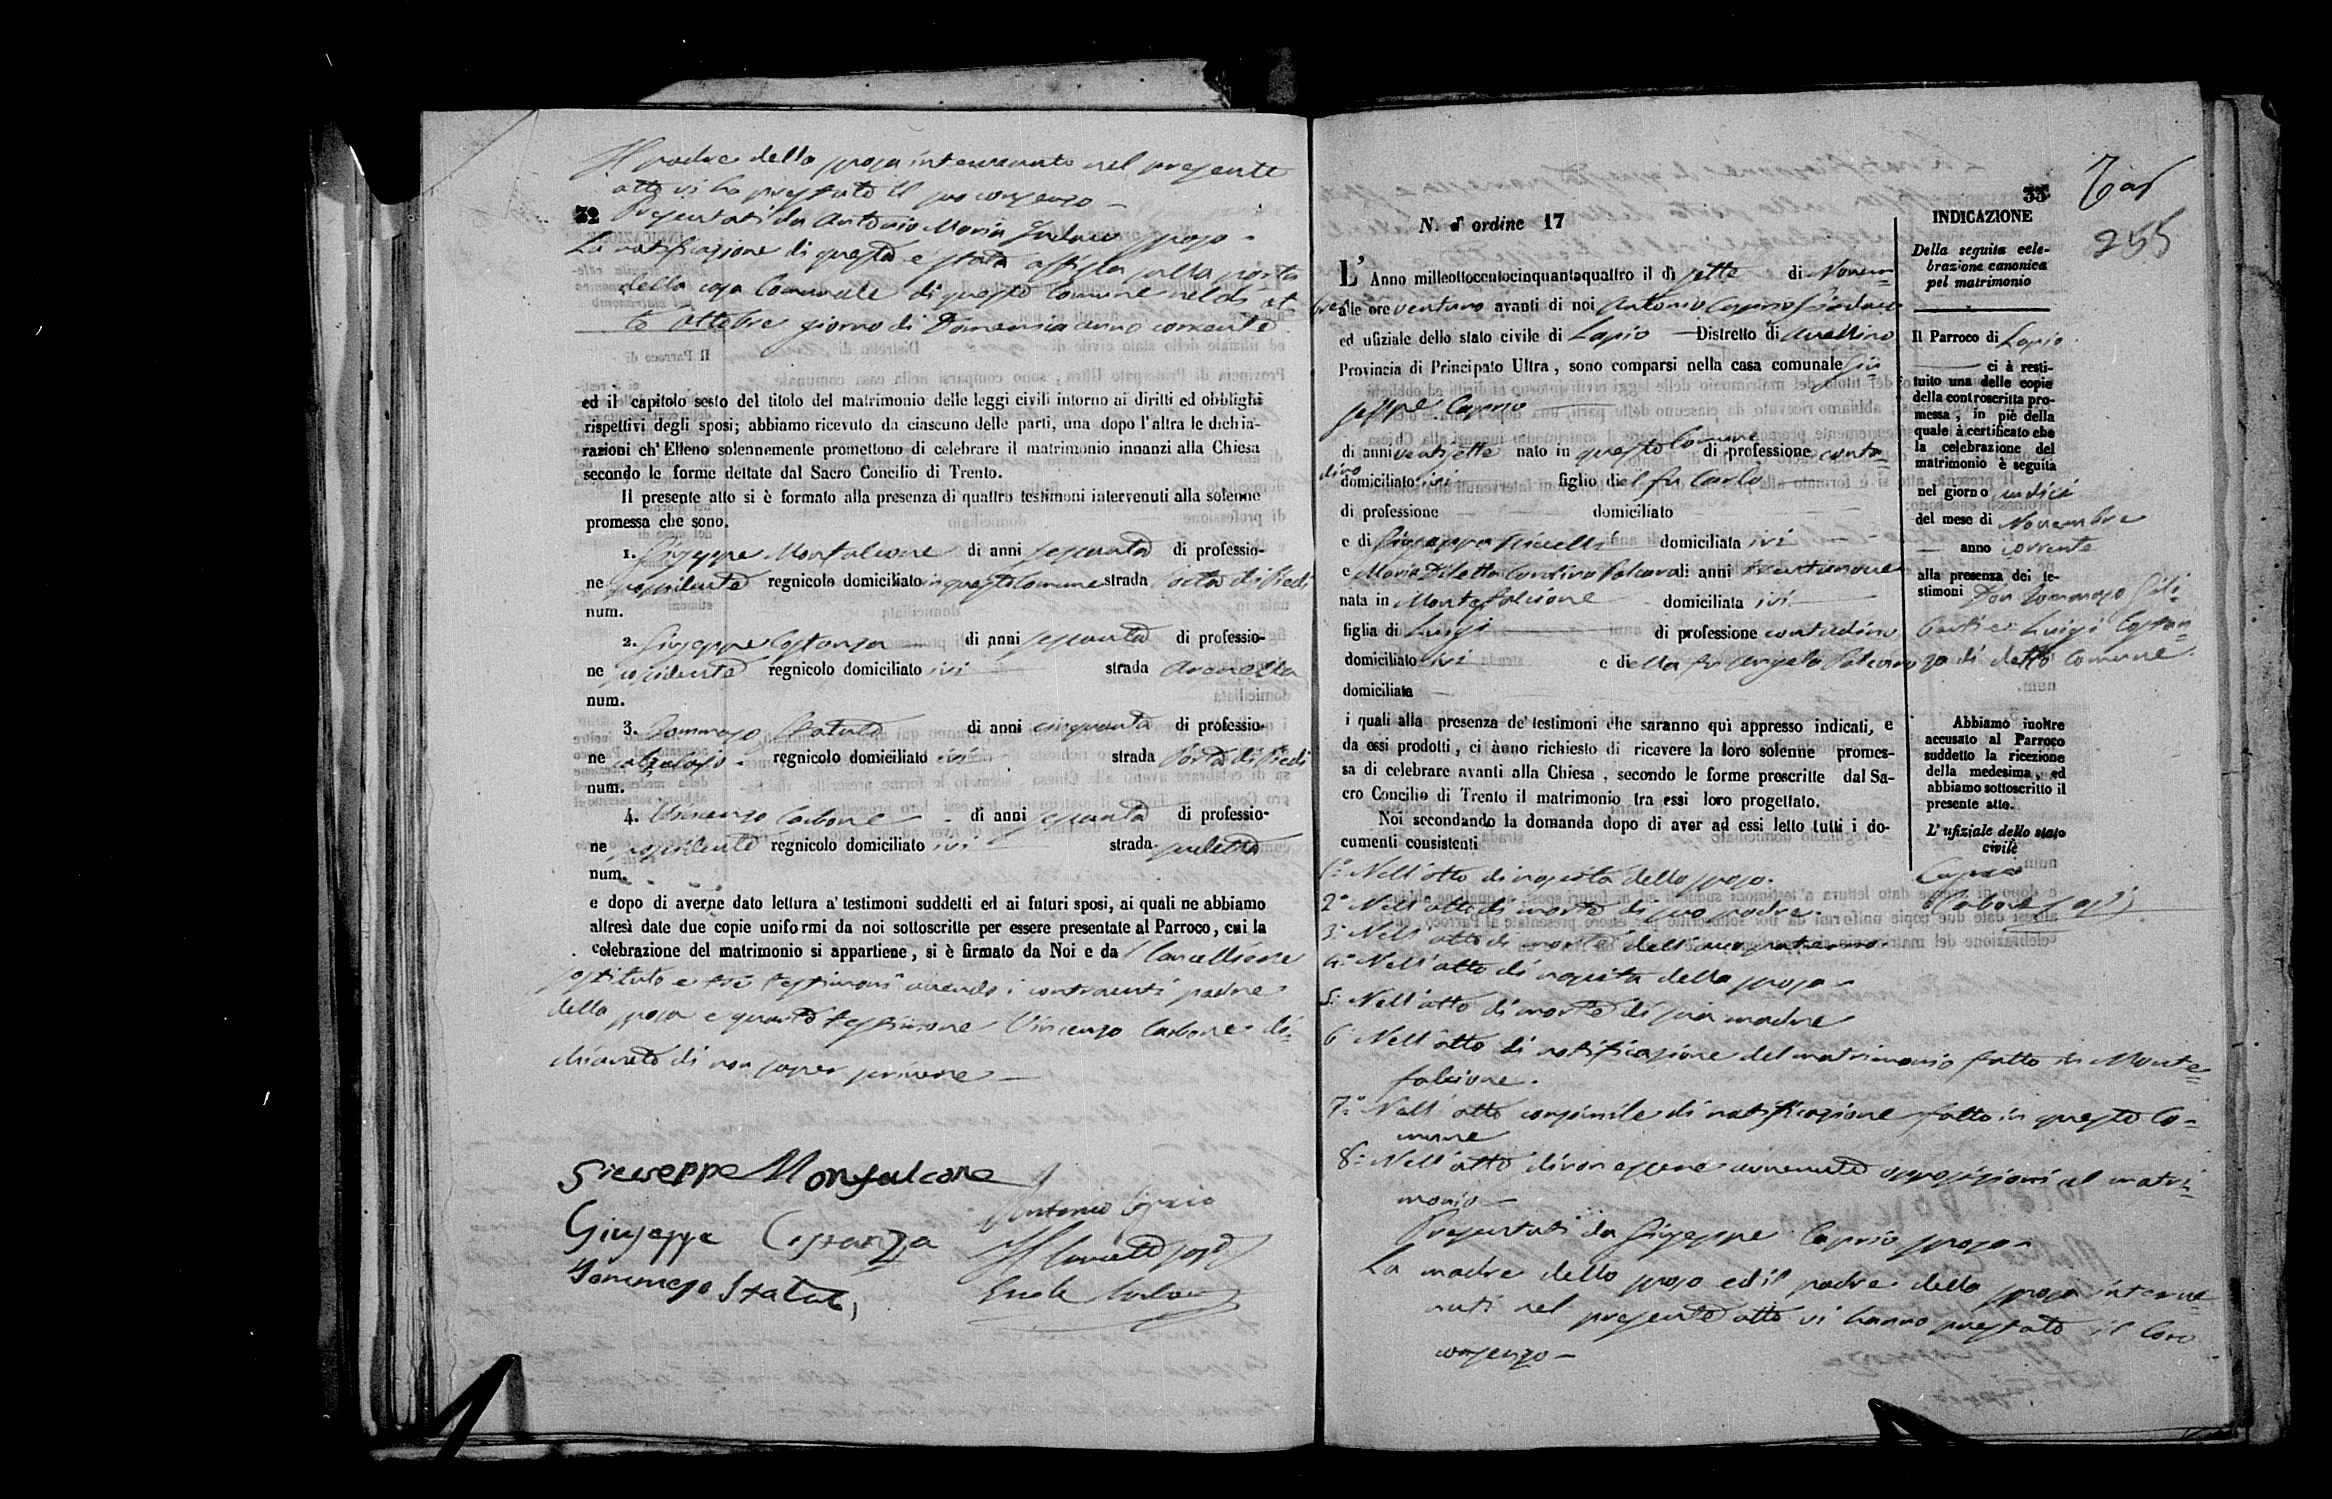 Il padre della sposa intervenuto nel presente
atto vi ha prestato il suo consenso —
32 Presentati da Antonio Maria sposo —
La notificazione di questo è stata affissa alla porta
della casa Comunale di questo Comune nel dì ot
to Ottobre giorno di Domenica anno corrente
ed il capitolo sesto del titolo del matrimonio delle leggi civili intorno ai diritti ed obblighi
rispettivi degli sposi; abbiamo ricevuto da ciascuno delle parti, una dopo l'altra le dichia-
razioni ch'Elleno solennemente promettono di celebrare il matrimonio innanzi alla Chiesa
secondo le forme dettate dal Sacro Concilio di Trento.
Il presente atto si è formato alla presenza di quattro testimoni intervenuti alla solenne
promessa che sono.
1. Giuseppe Monfalcone di anni sessanta di professio-
ne possidente regnicolo domiciliato in questo Comune strada Porta di Piedi
num.
2. Giuseppe Costanza di anni sessanta di professio-
ne possidente regnicolo domiciliato ivi strada
num.
3. Tommaso Statuto di anni cinquanta di professio-
ne calzolajo regnicolo domiciliato ivi strada Porta di Piedi
num.
4. Vincenzo Carbone di anni sessanta di professio-
ne possidente regnicolo domiciliato ivi strada
num.
e dopo di averne dato lettura a' testimoni suddetti ed ai futuri sposi, ai quali ne abbiamo
altresì date due copie uniformi da noi sottoscritte per essere presentate al Parroco, cui la
celebrazione del matrimonio si appartiene, si è firmato da Noi e dal Cancelliere
sostituto e tre testimoni avendo i contraenti padre
della sposa e quarto testimone Vincenzo Carbone di-
chiarato di non saper scrivere —
Giuseppe Monfalcone
Antonio Caprio
Giuseppe Costanza
Tommaso Statuto
33
255
N. d'ordine 17
L'Anno milleottocentocinquantaquattro il dì sette di Novem-
bre alle ore ventuno avanti di noi Antonio Caprio Sindaco
ed ufiziale dello stato civile di Lapio — Distretto di Avellino
Provincia di Principato Ultra, sono comparsi nella casa comunale Giu-
seppe Caprio
di anni ventisette nato in questo Comune di professione conta-
dino domiciliato ivi figlio del fu Carlo
di professione domiciliato
e di Giuseppa domiciliata ivi
e Maria Diletta Contina di anni trentanove
nata in Montefalcione domiciliata ivi
figlia di Luigi di professione contadino
domiciliato ivi e della fu Angela
domiciliata
i quali alla presenza de' testimoni che saranno qui appresso indicati, e
da essi prodotti, ci ànno richiesto di ricevere la loro solenne promes-
sa di celebrare avanti alla Chiesa, secondo le forme prescritte dal Sa-
cro Concilio di Trento il matrimonio tra essi loro progettato.
Noi secondando la domanda dopo di aver ad essi letto tutti i do-
cumenti consistenti
1º Nell'atto di nascita dello sposo.
2º Nell'atto di morte di suo padre.
3º Nell'atto di morte dell'avo paterno
4º Nell'atto di nascita della sposa —
5º Nell'atto di morte di sua madre
6º Nell'atto di notificazione del matrimonio fatto in Monte-
falcione.
7º Nell'atto consimile di notificazione fatto in questo Co-
mune
8º Nell'atto di non essere avvenute opposizioni al matri-
monio —
Presentati da Giuseppe Caprio sposo —
La madre dello sposo ed il padre della sposa interve-
nuti nel presente atto vi hanno prestato il loro
consenso —
INDICAZIONE
Della seguita cele-
brazione canonica
pel matrimonio
Il Parroco di Lapio
ci à resti-
tuito una delle copie
della controscritta pro-
messa, in piè della
quale à certificato che
la celebrazione del
matrimonio è seguita
nel giorno undici
del mese di Novembre
anno corrente
alla presenza dei te-
stimoni Don Tommaso Gili-
berti e Luigi Costan-
zo di detto Comune
Abbiamo inoltre
accusato al Parroco
suddetto la ricezione
della medesima, ed
abbiamo sottoscritto il
presente atto.
L'ufiziale dello stato
civile
Caprio
Carbone